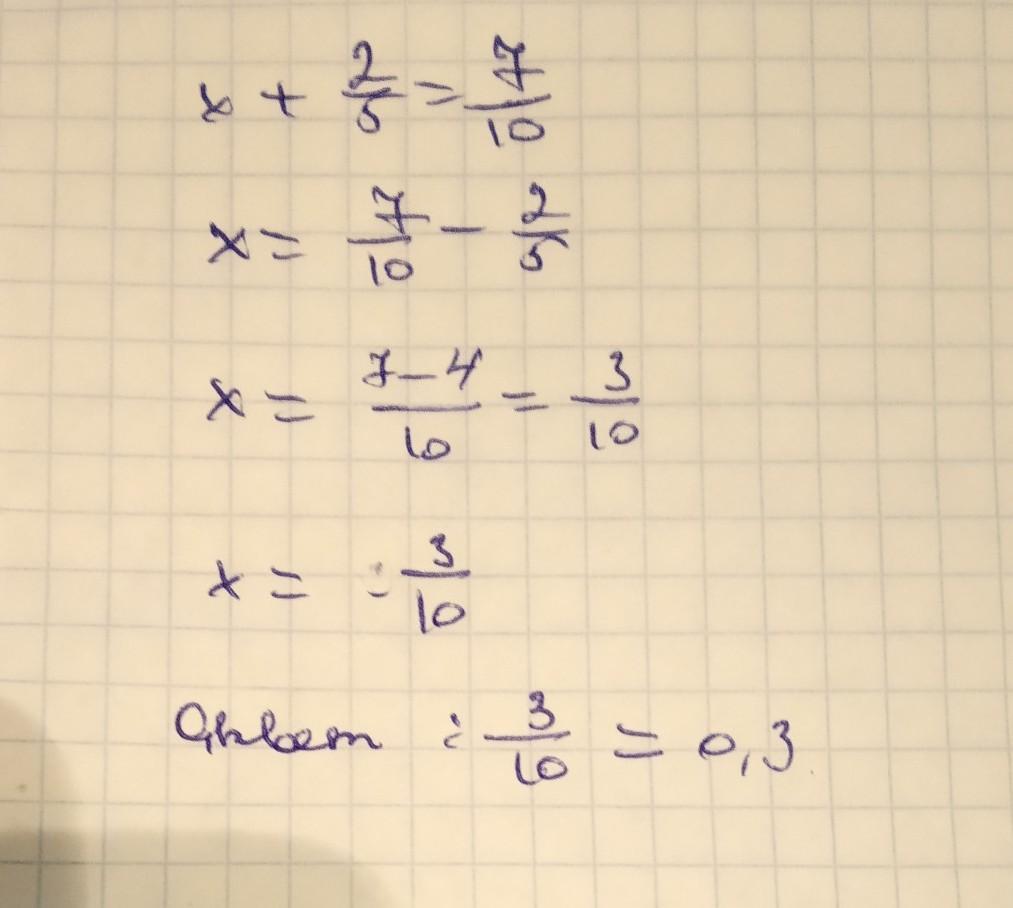 x + 2/5 = 7/10
x = 7/10 - 2/5
x = 7-4/10 = 3/10
x = 3/10
Ответ : 3/10 = 0,3